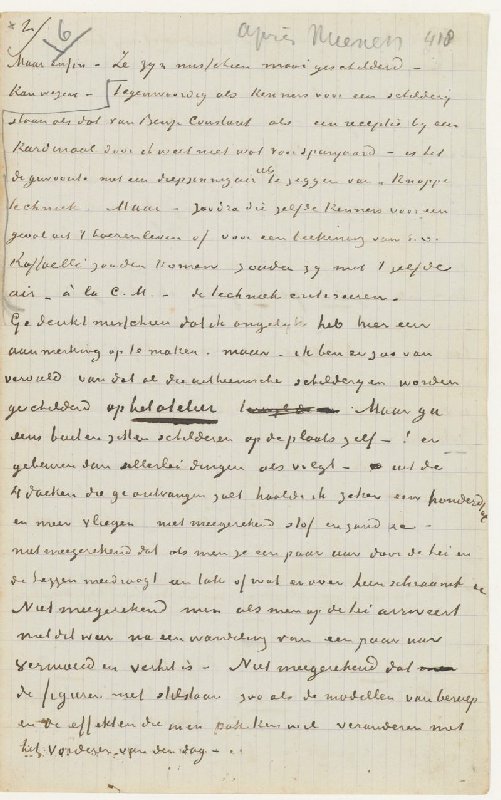 * 2/ 6 après Meenen 418
Maar enfin – Ze zijn misschien mooi geschilderd –
Kan wezen – Tegenwoordig als kenners voor een schilderij
staan als dat van Benj. Constant als een receptie bij een
Kardinaal door ik weet niet wat voor Spanjaard – is het
de gewoonte met een diepzinnig air iets te zeggen van "Knappe
techniek Maar – zoodra die zelfde kenners voor een
geval uit 't boerenleven of voor een teekening van b.v.
Raffaelli zouden komen zouden zij met 't zelfde
air – à la C.M. – de techniek critiseeren.
Ge denkt misschien dat ik ongelijk heb hier een
aanmerking op te maken. maar – ik ben er zoo van
vervuld van dat al die uitheemsche schilderijen worden
geschilderd op het atelier. Maar ga
eens buiten zitten schilderen op de plaats zelf – ! er
gebeuren dan allerlei dingen als volgt – uit de
4 doeken die ge ontvangen zult haalde ik zeker een honderd
en meer vliegen niet meegerekend stof en zand &c –
niet meegerekend dat als men ze een paar uur door de hei en
de heggen meedraagt een tak of wat er over heen schramt &c
Niet meegerekend men als men op de hei arriveert
met dit weer na een wandeling van een paar uur
vermoeid en verhit is – Niet meegerekend dat
de figuren niet stilstaan zoo als de modellen van beroep
en de effekten die men pakken wil veranderen met
het vorderen van den dag – .